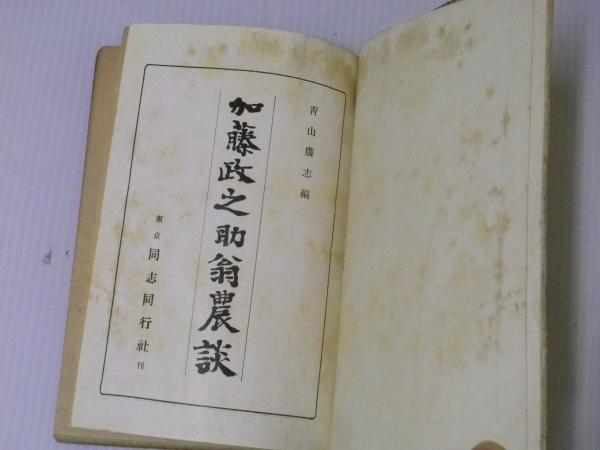 青山廣志編
加藤政之助翁農談
東京 同志同行社刊